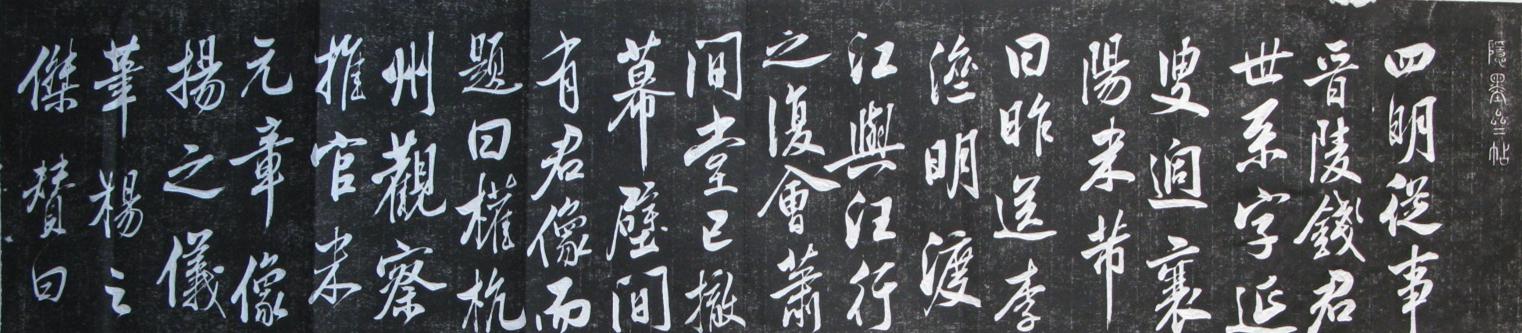 四明從事
晉陵錢君
世系字延
叟迥襄
陽米芾
曰昨送李
澹明渡
江與汪行
之復會蕭
閒堂已撤
幕壁間
有君像而
題曰權杭
州觀察
推官米
元章像
揚之儀
筆楊之
傑贊曰